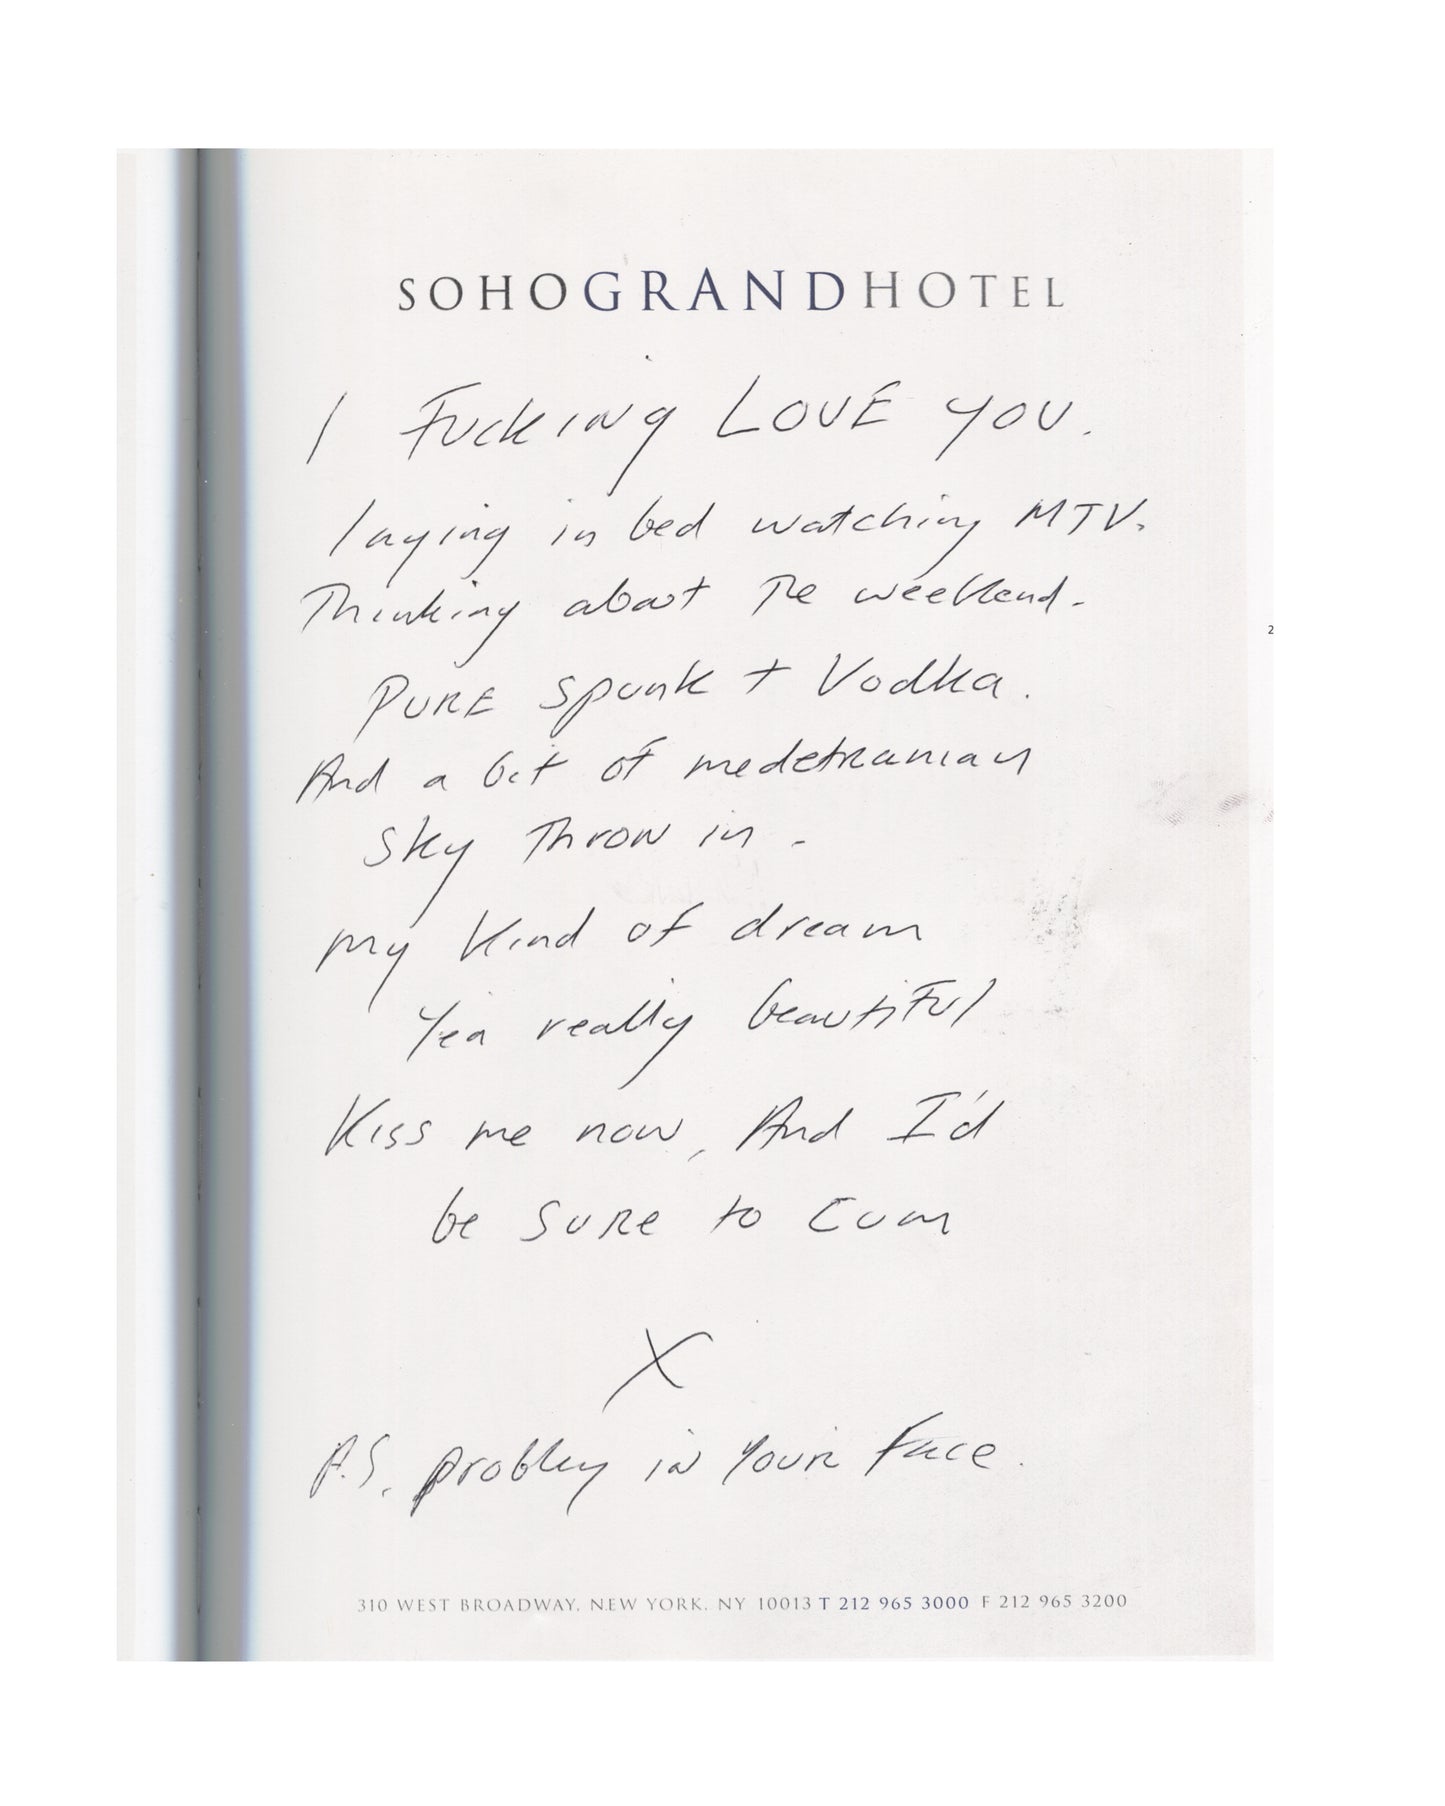 SOHOGRANDHOTEL
I Fucking LOVE YOU.
laying in bed watching MTV.
Thinking about The weekend.
PURE Spunk + Vodka.
And a bit of medetranian
2
sky Throw in.
my kind of dream
Yea really beautiful
Kiss me now, And I'd
be SURE to Cum
X
P.S. probley in Your Face.
310 WEST BROADWAY, NEW YORK, NY 10013 T 212 965 3000 F 212 965 3200